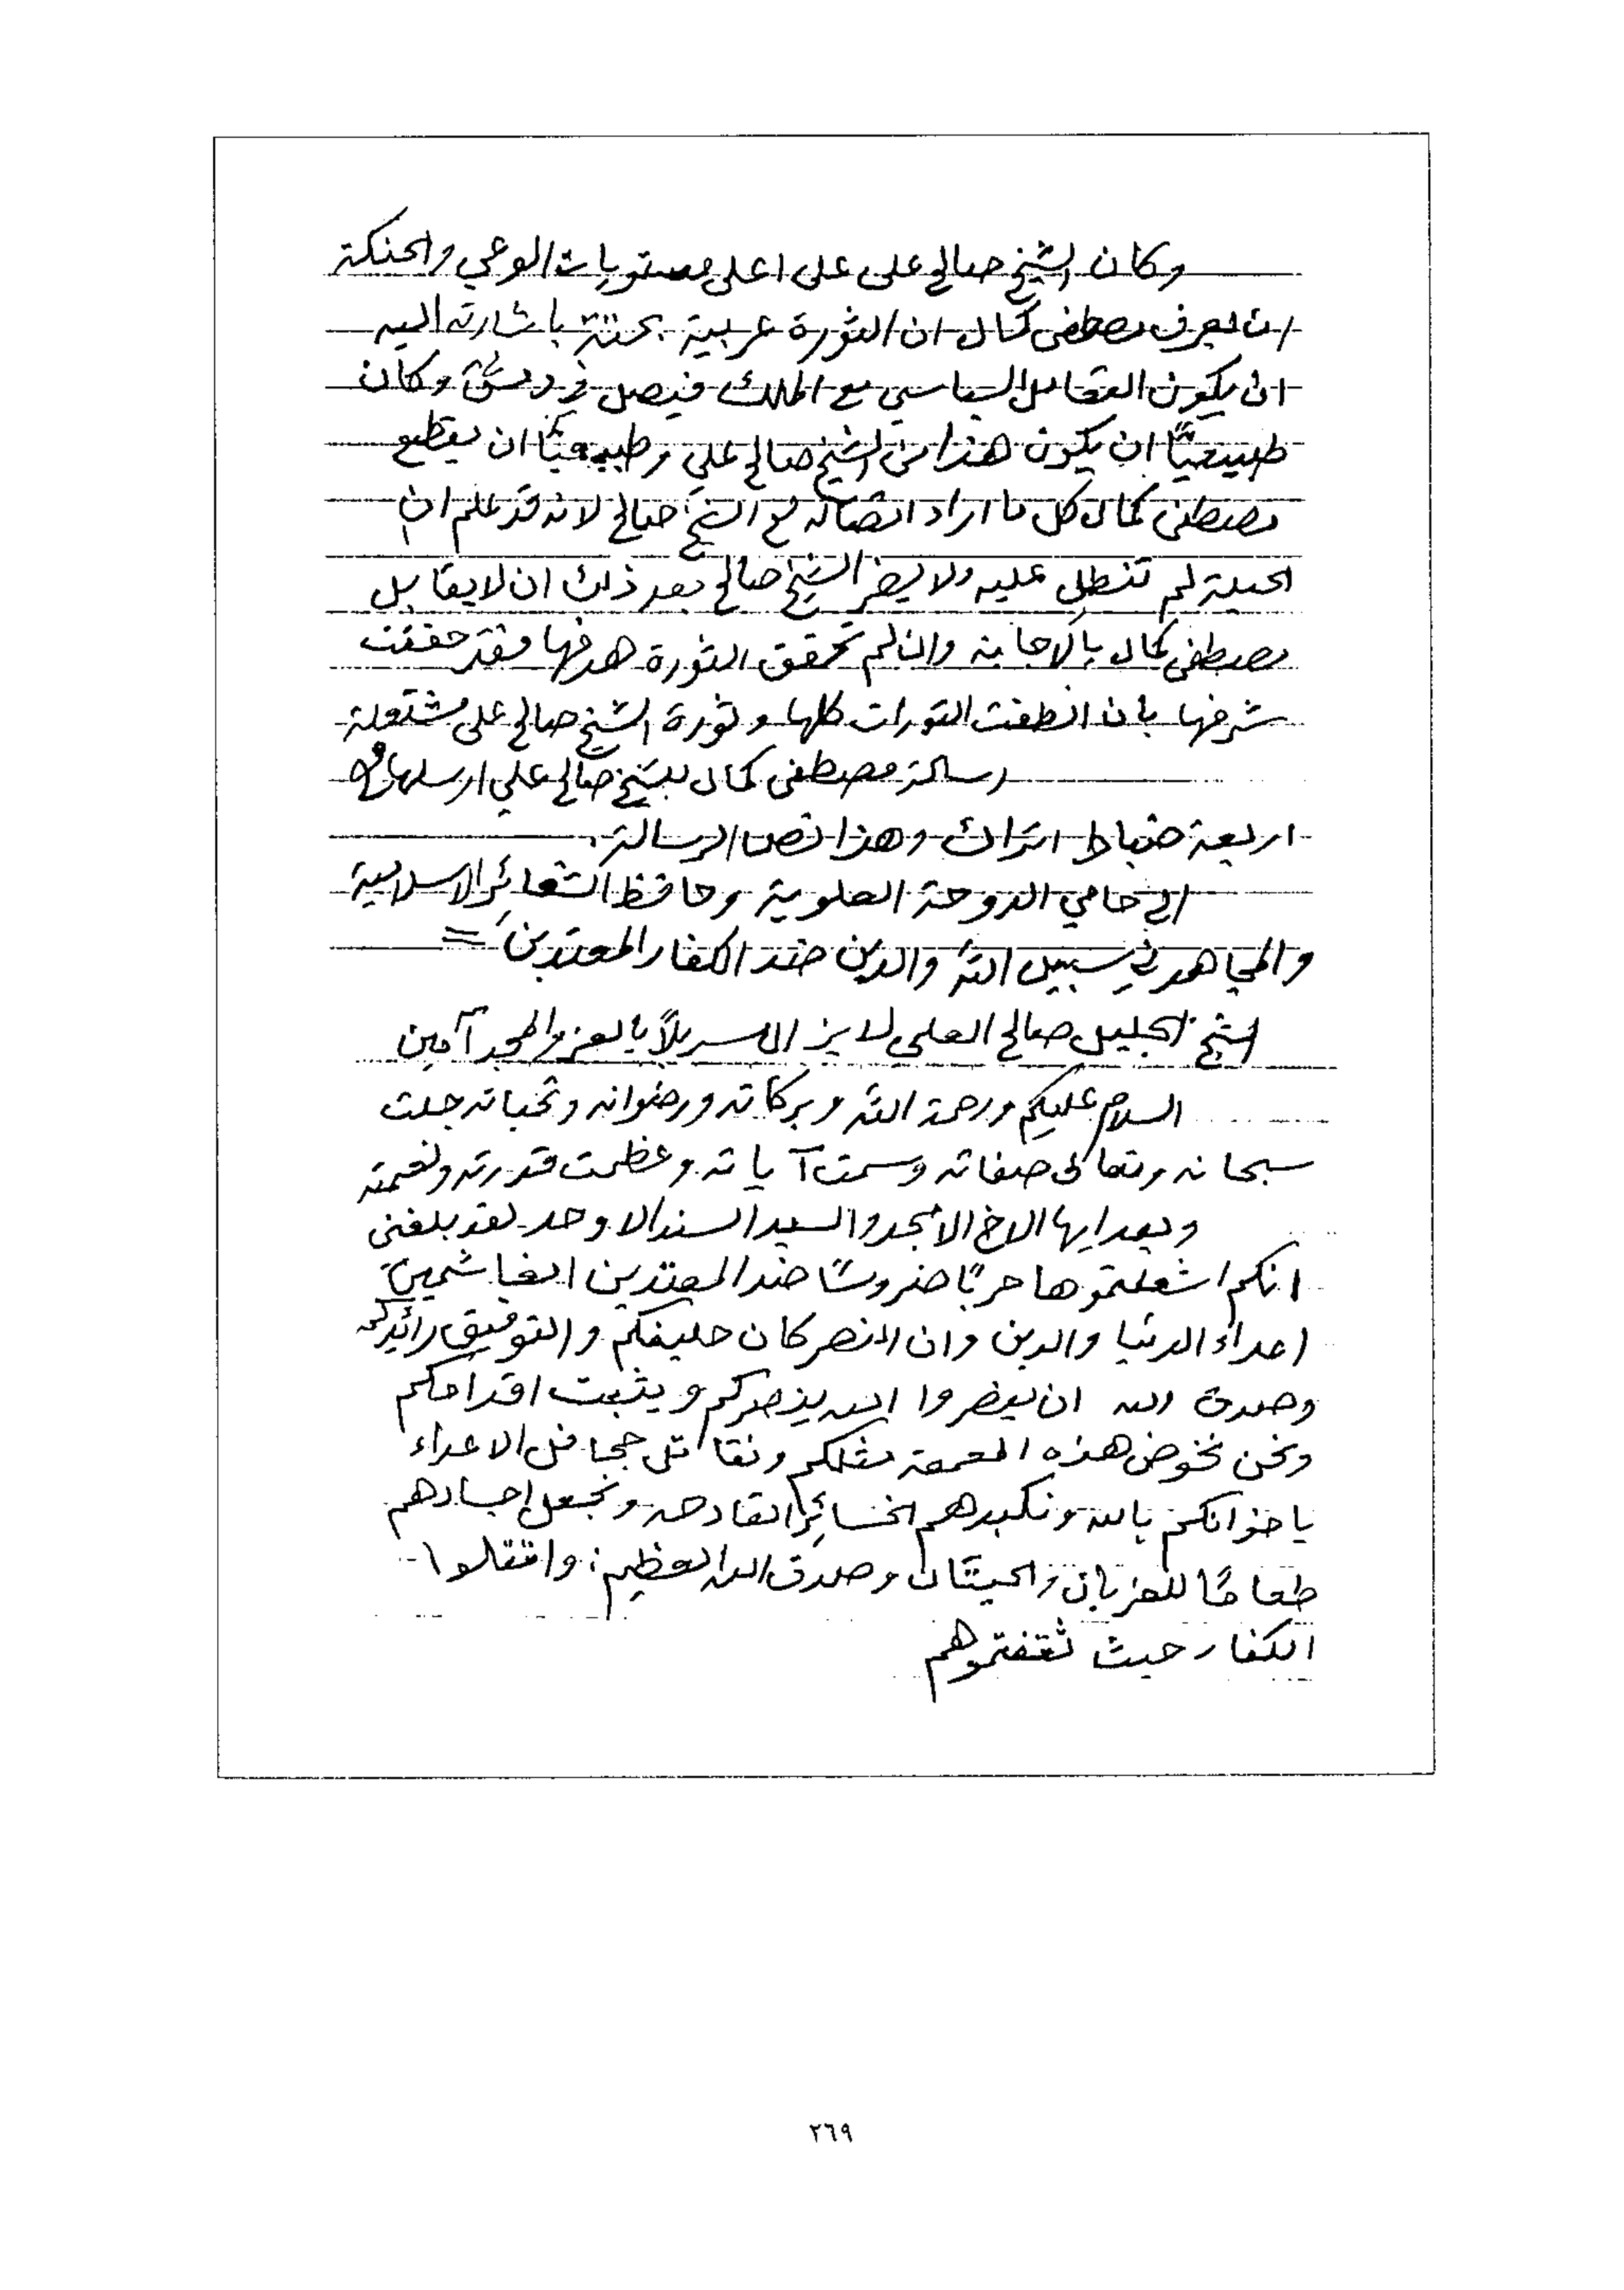 وكان الشيخ صالح علي على اعلى مستويات الوعي والحنكة
ان يعرف مصطفى كمال ان الثورة عربية بحتة باشارته اليه
ان يكون التعامل السياسي مع الملك فيصل في دمشق وكان
طبيعيًا ان يكون هذا من الشيخ صالح علي وطبيعيًا ان يقطع
مصطفى كمال كل ما اراد اتصاله مع الشيخ صالح لانه قد علم ان
الحيلة لم تنطل عليه ولا يضر الشيخ صالح بعد ذلك ان لا يقابل
مصطفى كمال بالاجابة وان لم تحقق الثورة هدفها فقد حققت
شرفها بان انطفت الثورات كلها وثورة الشيخ صالح علي مشتعلة
رسالة مصطفى كمال للشيخ صالح علي ارسلها مع
اربعة ضباط اتراك وهذا نص الرسالة.
الى حامي الدوحة العلوية وحافظ الشعائر الاسلامية
والمجاهد في سبيل الله والدين ضد الكفار المعتدين =
الشيخ الجليل صالح العلي لا يزال مسربلاً بالعز والمجد آمين
السلام عليكم ورحمة الله وبركاته ورضوانه وتحياته جلت
سبحانه وتعالى صفاته وسمت آياته وعظمت قدرته ونعمته
وبعد ايها الاخ الامجد والسيد السند الاوحد لقد بلغني
انكم اشعلتموها حربًا ضروسًا ضد المعتدين الغاشمين
اعداء الدنيا والدين وان النصر كان حليفكم والتوفيق رائدكم
وصدق الله ان ينصروا الله ينصركم ويثبت اقدامكم
ونحن نخوض هذه المعمعة مثلكم ونقاتل جحافل الاعداء
ياخوانكم بالله ونكبدهم الخسائر الفادحه ونجعل اجسادهم
طعامًا للغربان والحيتان وصدق الله العظيم: واقتلوا
الكفار حيث ثقفتموهم
٢٦٩